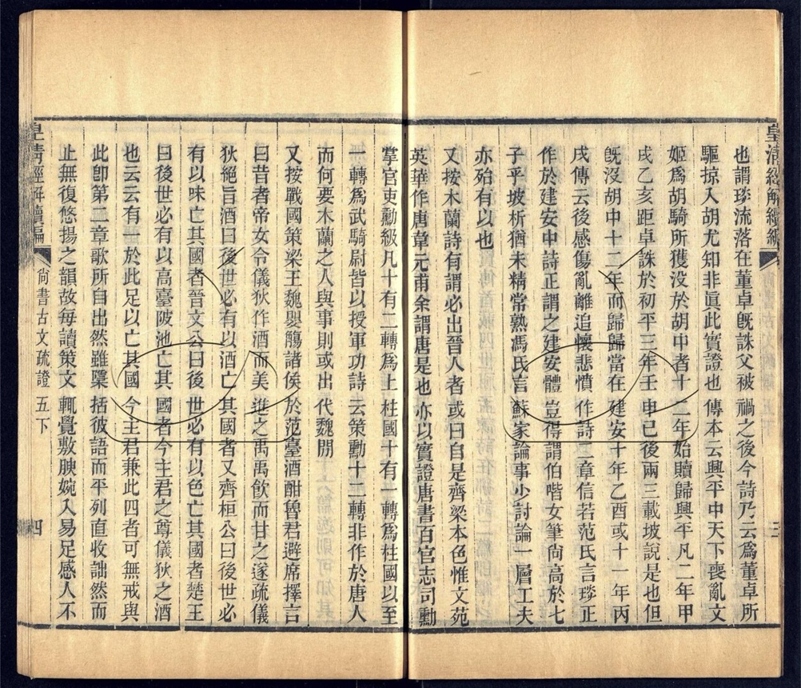 皇清經解續編
也謂琰流落在董卓旣誅父被禍之後今詩乃云爲董卓所
驅掠入胡尤知非眞此實證也傳本云興平中天下喪亂文
姬爲胡騎所獲没於胡中者十二年始贖歸興平凡二年甲
戌乙亥距卓誅於初平三年壬申已後兩三載坡說是也但
旣没胡中十二年而歸歸當在建安十年乙酉或十一年丙
戌傳云後感傷亂離追懷悲憤作詩二章信若范氏言琰正
作於建安中詩正謂之建安體豈得謂伯喈女筆尙高於七
子乎坡析猶未精常熟馮氏言蘇家論事少討論一層工夫
亦殆有以也
又按木蘭詩有謂必出晉人者或曰自是齊梁本色惟文苑
英華作唐韋元甫余謂唐是也亦以實證唐書百官志司勳
掌官吏勳級凡十有二轉爲上柱國十有一轉爲柱國以至
一轉爲武騎尉皆以授軍功詩云策勳十二轉非作於唐人
而何要木蘭之人與事則或出代魏閒
又按戰國策梁王魏嬰觴諸侯於范臺酒酣魯君避席擇言
曰昔者帝女令儀狄作酒而美進之禹禹飮而甘之遂疏儀
狄絕旨酒曰後世必有以酒亡其國者又齊桓公曰後世必
有以味亡其國者晉文公曰後世必有以色亡其國者楚王
曰後世必有以高臺陂池亡其國者今主君之尊儀狄之酒
也云云有一於此足以亡其國今主君兼此四者可無戒與
此卽第二章歌所自出然雖檃括彼語而平列直收詘然而
止無復悠揚之韻故每讀策文輒覺敷腴婉入易足感人不
皇淸經解續編
尚書古文疏證 五下
四